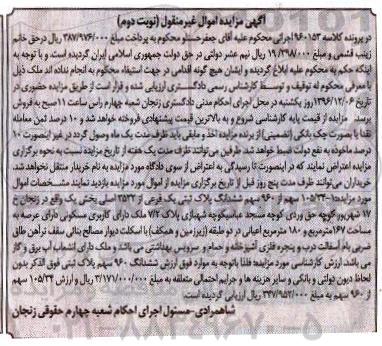 آگهی مزایده اموال غیرمنقول (نوبت دوم)
در پرونده کلاسه ۹۶۰۱۵۳ اجرائی محکوم علیه آقای جعفر حسنلو محکوم به پرداخت مبلغ ۳۸۷/۹۷۶/۰۰۰ ریال در حق خانم
زینب قشمی و مبلغ ۱۹/۳۹۸/۰۰۰ ریال نیم عشر دولتی در حق دولت جمهوری اسلامی ایران گردیده است. و با توجه به
اینکه حکم به محکوم علیه ابلاغ گردیده و ایشان هیچ گونه اقدامی در جهت استیفاء محکوم به انجام نداده اند ملک ذیل
با معرفی محکوم له توقیف و توسط کارشناس رسمی دادگستری ارزیابی شده و قرار است از طریق مزایده حضوری در
تاریخ ۱۳۹۶/۱۲/۰۶ روز یکشنبه در محل اجرای احکام مدنی دادگستری زنجان شعبه چهارم راس ساعت ۱۱ صبح به فروش
برسد. مزایده از قیمت پایه کارشناسی شروع و به بالاترین قیمت پیشنهادی فروخته خواهد شد و ۱۰ درصد ثمن معامله
نقدا یا بصورت چک بانکی (تضمینی) از برنده مزایده اخذ و مابقی باید ظرف مدت یک ماه وصول گردد در غیر اینصورت ۱۰
درصد ماخوذه به نفع دولت ضبط خواهد شد. طرفین می توانند ظرف مدت یک هفته از تاریخ مزایده نسبت به نحوه برگزاری
مزایده اعتراض نمایند که در اینصورت تا رسیدگی به اعتراض از سوی دادگاه مورد مزایده به نام خریدار منتقل نخواهد شد.
خریداران می توانند ظرف مدت پنج روز قبل از تاریخ برگزاری مزایده از اموال مورد مزایده بازدید نمایند مشخصات اموال
مورد مزایده: ۱- ۱۰۵/۳۳ سهم از ۹۶۰ سهم ششدانگ پلاک ثبتی یک فرعی از ۲۵۳۲ اصلی بخش یک واقع در زنجان خ
۱۷ شهریور کوچه حق وردی کوچه مسجد عباسیکوچه شهبازی پلاک ۷/۲ ملک دارای کاربری مسکونی دارای عرصه به
مساحت ۱۶۷ مترمربع و ۱۸۰ مترمربع اعیانی در دو طبقه (زیرزمین و همکف) با اسکلت دیوار مصالح بنائی سقف تراهن طاق
ضربی بام آسفالت درب و پنجره فلزی آشپزخانه و حمام و سرویس بهداشتی می باشد و ملک دارای انشعاب آب برق و گاز
می باشد. ارزش کارشناسی مورد مزایده: فلذا باتوجه به موارد فوق ارزش ششدانگ ۹۶۰ سهم پلاک ثبتی فوق الذکر بدون
لحاظ دیون دولتی و بانکی و سایر هزینه ها و جرایم احتمالی متعلقه به مبلغ ۳/۱۷۷/۰۰۰/۰۰۰ ریال و ارزش ۱۰۵/۳۳ سهم
از ۹۶۰ سهم به مبلغ ۳۴۷/۹۵۲/۰۰۰ ریال ارزیابی گردیده است.
شاهمرادی-مسئول اجرای احکام شعبه چهارم حقوقی زنجان